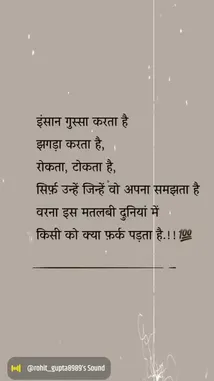 इंसान गुस्सा करता है
झगड़ा करता है,
रोकता, टोकता है,
सिर्फ़ उन्हें जिन्हें वो अपना समझता है
वरना इस मतलबी दुनियां में
किसी को क्या फ़र्क पड़ता है.!!💯
@rohit_gupta8989's Sound